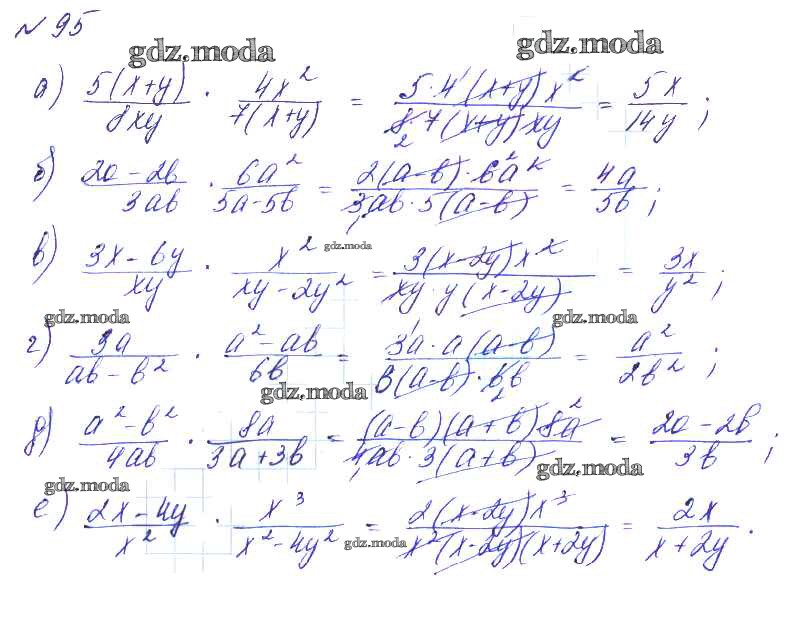 № 95
gdz.moda gdz.moda
а) 5(x+y)/8xy · 4x²/7(x+y) = 5·4¹(x+y)x²/8₂·7(x+y)xy = 5x/14y ;
б) 2a-2b/3ab · 6a²/5a-5b = 2(a-b)·6²a²/3₁ab·5(a-b) = 4a/5b ;
в) 3x-6y/xy · x²/xy-2y² = 3(x-2y)x²/xy·y(x-2y) = 3x/y² ;
gdz.moda
gdz.moda gdz.moda
г) 3a/ab-b² · a²-ab/6b = 3¹a·a(a-b)/b(a-b)·6₂b = a²/2b² ;
gdz.moda
д) a²-b²/4ab · 8a/3a+3b = (a-b)(a+b)8²a/4₁ab·3(a+b) = 2a-2b/3b ;
gdz.moda gdz.moda
е) 2x-4y/x² · x³/x²-4y² = 2(x-2y)x³/x²(x-2y)(x+2y) = 2x/x+2y .
gdz.moda